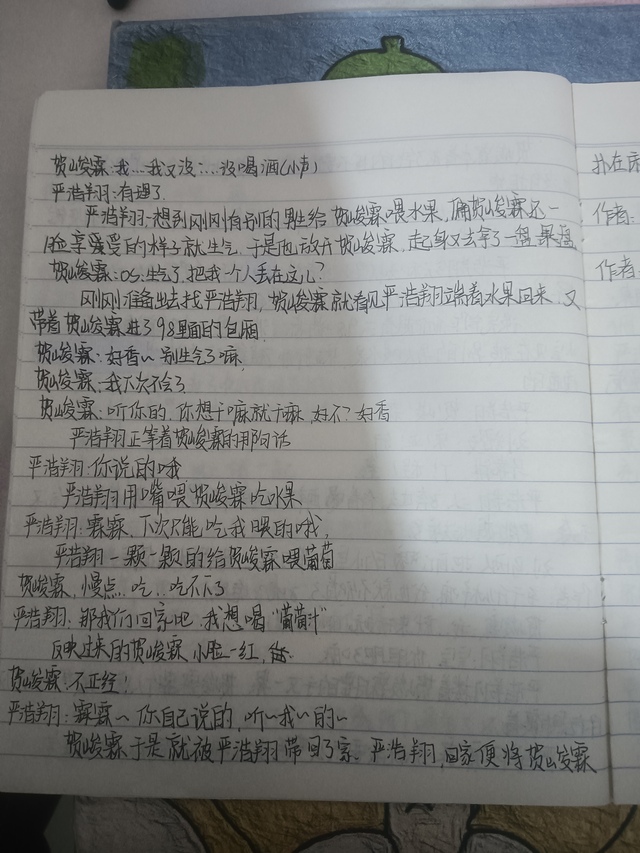 贺峻霖:我…我又没……没喝酒(小声)
严浩翔:有理了.
严浩翔一想到刚刚有别的男生给贺峻霖喂水果,俩贺峻霖还一
脸享受的样子就生气,于是他放开贺峻霖,起身又去拿了一盘果盘
贺峻霖:os:生气了,把我一个人丢在这儿?
刚刚准备出去找严浩翔,贺峻霖就看见严浩翔端着水果回来,又
带着贺峻霖进了98里面的包厢
贺峻霖:好香~别生气了嘛,
贺峻霖:我下次不会了
贺峻霖:听你的,你想干嘛就干嘛,好不?好香
严浩翔正等着贺峻霖的那句话
严浩翔:你说的哦
严浩翔用嘴喂贺峻霖吃水果
严浩翔:霖霖,下次只能吃我喂的哦,
严浩翔一颗一颗的给贺峻霖喂葡萄
贺峻霖,慢点,吃..吃不下了
严浩翔:那我们回家吧,我想喝“葡萄汁”
反映过来的贺峻霖小脸一红,
贺峻霖:不正经!
严浩翔:霖霖~你自己说的,听~我~的~
贺峻霖于是就被严浩翔带回了家.严浩翔,回家便将贺峻霖
扑在床
作者:
作者